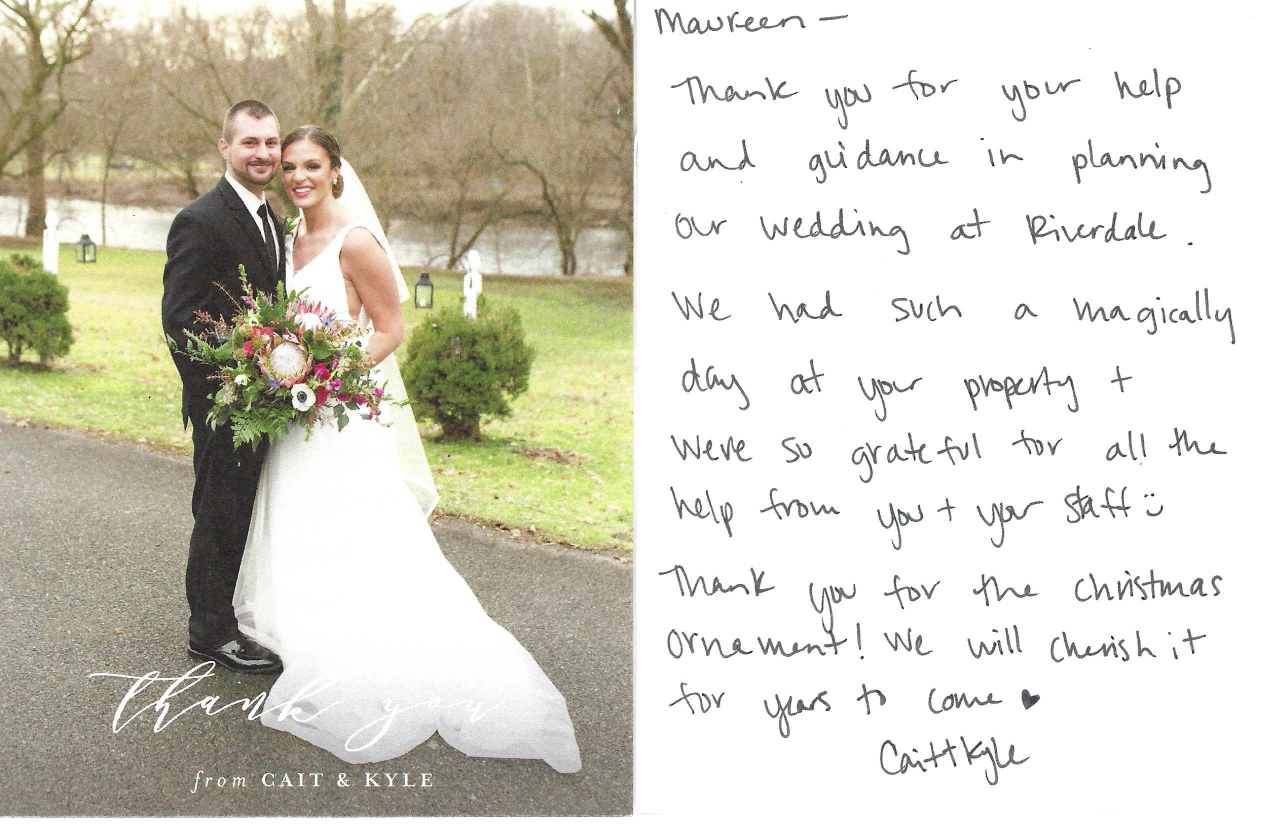 thank you
from CAIT & KYLE
Maureen —
Thank you for your help
and guidance in planning
our wedding at Riverdale.
We had such a magically
day at your property +
were so grateful for all the
help from you + your staff :)
Thank you for the Christmas
ornament! We will cherish it
for years to come ♥
Cait + Kyle